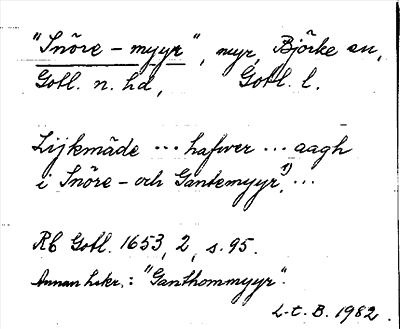 "Snöre-myyr", myr, Björke sn,
Gotl. n. hd, Gotl. l.
Lijkmåde ... hafwer ... aagh
i Snöre- och Gantemyyr¹⁾, ...
Rb Gotl. 1653, 2, s. 95.
Annan hskr.: "Ganthommyyr".
L-t. B. 1982.